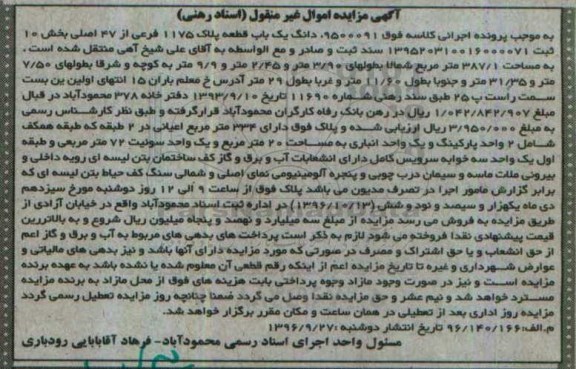 آگهی مزایده اموال غیر منقول (اسناد رهنی)
به موجب پرونده اجرائی کلاسه فوق ۹۵۰۰۰۹۱، دانگ یک باب قطعه پلاک ۱۱۷۵ فرعی از ۴۷ اصلی بخش ۱۰
ثبت ۱۳۹۵۲۰۳۱۰۰۱۶۰۰۰۰۷۱ سند ثبت و صادر و مع الواسطه به آقای علی شیخ آهی منتقل شده است،
به مساحت ۳۸۷/۱ متر مربع شمالا بطولهای ۳/۹۰ متر و ۲/۴۵ متر و ۹/۹ متر به کوچه و شرقا بطولهای ۷/۵۰
متر و ۳۱/۳۵ متر و جنوبا بطول ۱۱/۶۰ متر و غربا بطول ۲۹ متر آدرس خ معلم باران ۱۵ انتهای اولین بن بست
سمت راست پ ۲۵ طبق سند رهنی شماره ۱۱۶۹۰۰ تاریخ ۱۳۹۳/۹/۱۰ دفتر خانه ۳۷۸ محمودآباد در قبال
مبلغ ۱/۰۴۲/۸۴۲/۹۰۷ ریال در رهن بانک رفاه کارگران محمودآباد قرارگرفته و طبق نظر کارشناس رسمی
به مبلغ ۳/۹۵۰/۰۰۰ ریال ارزیابی شده و پلاک فوق دارای ۳۳۴ متر مربع اعیانی در ۲ طبقه که طبقه همکف
شامل ۲ واحد پارکینگ و یک واحد انباری به مساحت ۲۰ متر مربع و یک واحد سوئیت ۷۲ متر مربعی و طبقه
اول یک واحد سه خوابه سرویس کامل دارای انشعابات آب و برق و گاز کف ساختمان بتن لیسه ای رویه داخلی و
بیرونی ملات ماسه و سیمان درب چوبی و پنجره آلومینیومی نمای اصلی و شمالی سنگ کف حیاط بتن لیسه ای که
برابر گزارش مامور اجرا در تصرف مدیون می باشد پلاک فوق از ساعت ۹ الی ۱۲ روز دوشنبه مورخ سیزدهم
دی ماه یکهزار و سیصد و نود و شش (۱۳۹۶/۱۰/۱۳) در اداره ثبت اسناد محمودآباد واقع در خیابان آزادی از
طریق مزایده به فروش می رسد مزایده از مبلغ سه میلیارد و نهصد و پنجاه میلیون ریال شروع و به بالاترین
قیمت پیشنهادی نقدا فروخته می شود لازم به ذکر است پرداخت های بدهی های مربوط به آب و برق و گاز اعم
از حق انشعاب و یا حق اشتراک و مصرف در صورتی که مورد مزایده دارای آنها باشد و نیز بدهی های مالیاتی و
عوارض شهرداری و غیره تا تاریخ مزایده اعم از اینکه رقم قطعی آن معلوم شده یا نشده باشد به عهده برنده
مزایده است و نیز در صورت وجود مازاد وجوه پرداختی بابت هزینه های فوق از محل مازاد به برنده مزایده
مسترد خواهد شد و نیم عشر و حق مزایده نقدا وصل می گردد ضمنا چنانچه روز مزایده تعطیل رسمی گردد
مزایده روز اداری بعد از تعطیلی در همان ساعت و مکان مقرر برگزار خواهد شد.
م.الف: ۹۶/۱۴۰/۱۶۶ تاریخ انتشار دوشنبه: ۱۳۹۶/۹/۲۷
مسئول واحد اجرای اسناد رسمی محمودآباد- فرهاد آقابابایی رودباری